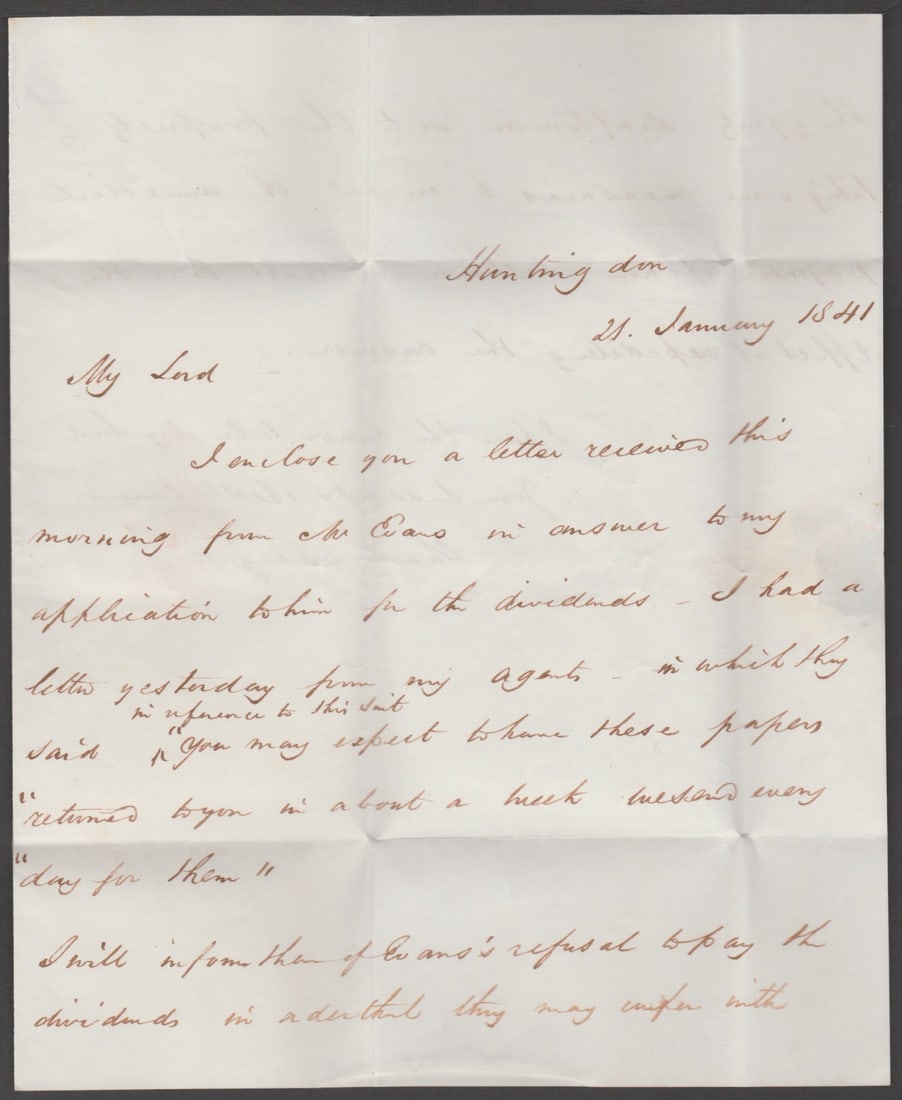 Huntingdon
21. January 1841
My Lord
I enclose you a letter received this
morning from Mr Evans in answer to my
application to him for the dividends - I had a
letter yesterday from my agents - in which they
in reference to this suit
said "You may expect to have these papers
"returned to you in about a week we send every
"day for them"
I will inform them of Evans's refusal to pay the
dividends in order that they may confer with